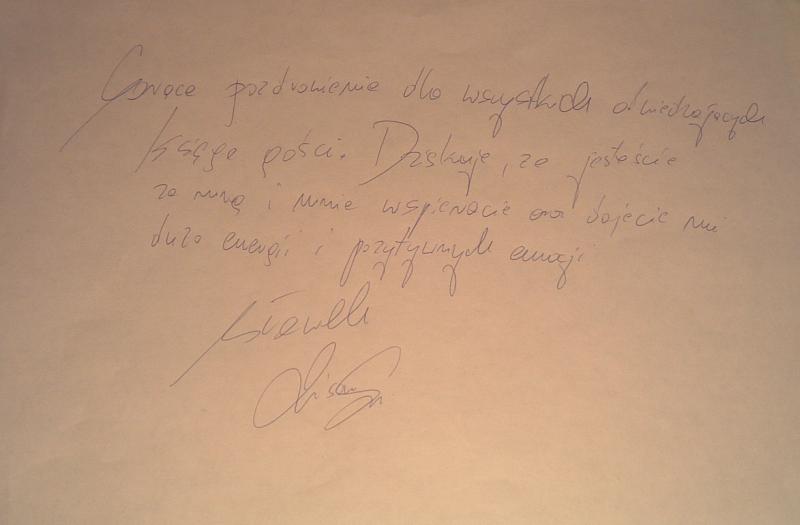 Gorące pozdrowienia dla wszystkich odwiedzających
Księgę gości. Dziękuję, że jesteście
ze mną i mnie wspieracie oraz dajecie mi
dużo energii i pozytywnych emocji
Sławek